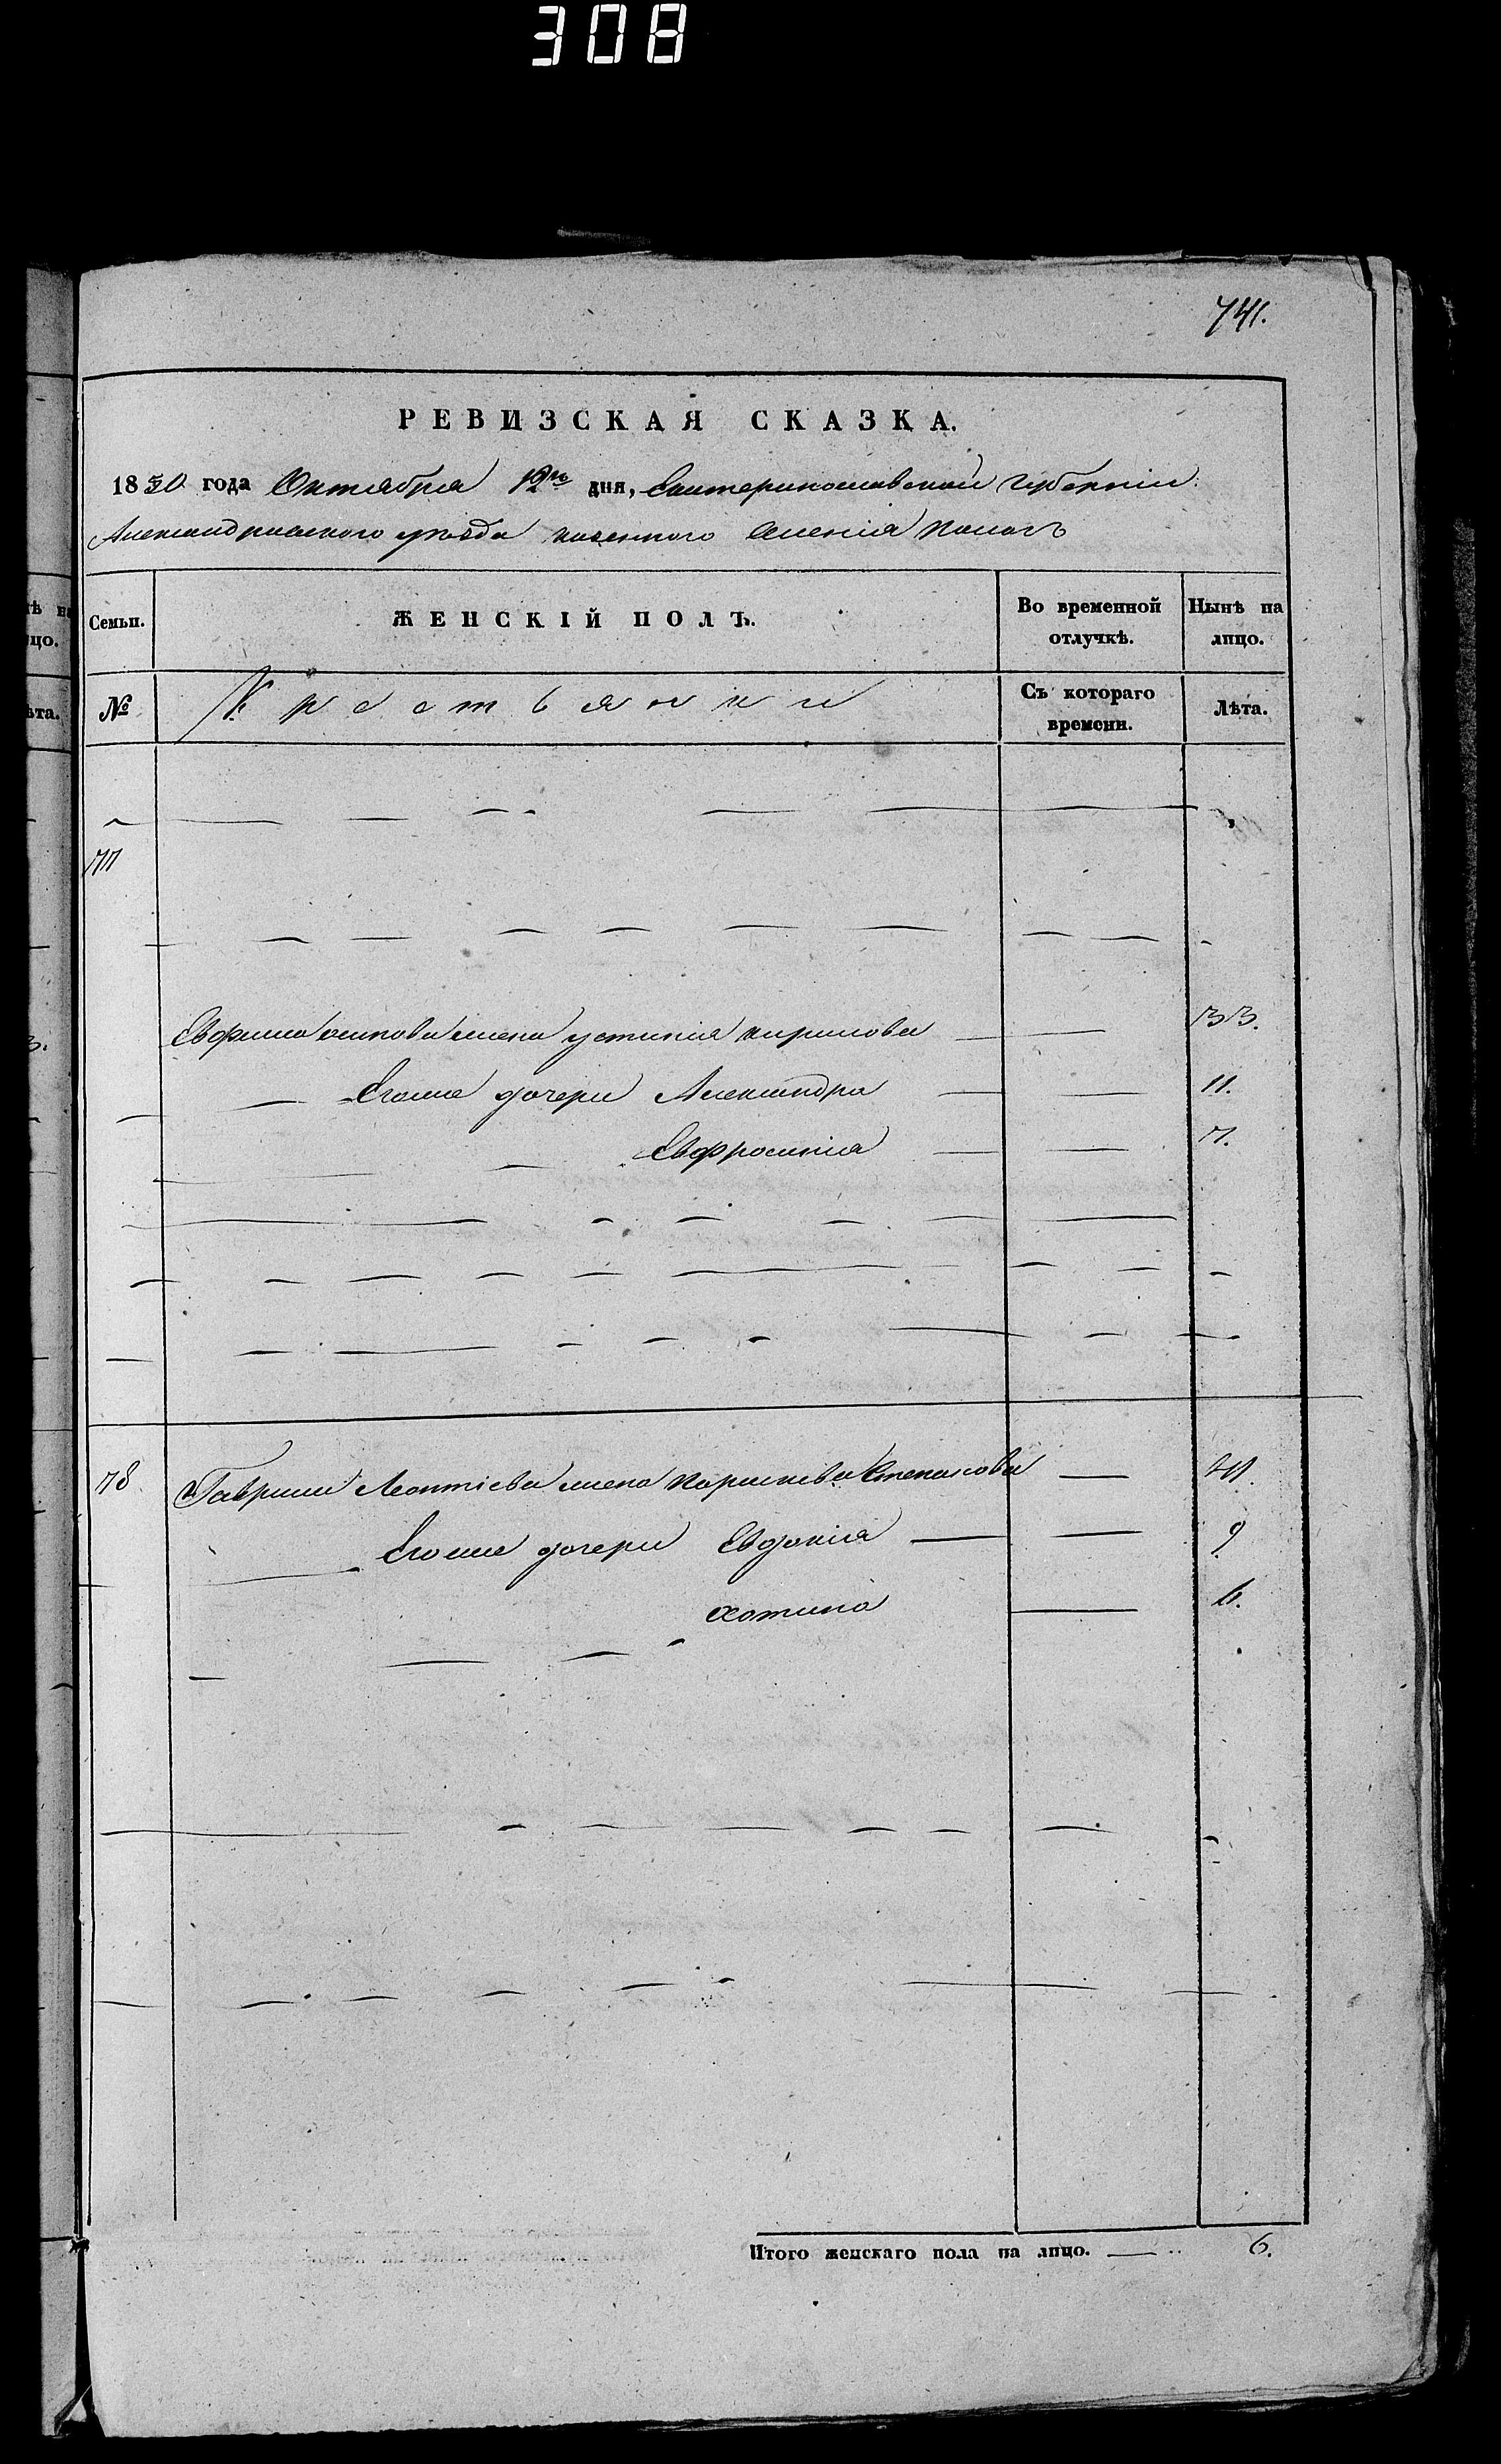 308
741.
РЕВИЗСКАЯ СКАЗКА.
1850 года Октября 12го дня, Екатеринославской Губерніи
Александровского уезда казенного селенія Пологъ
Семьи.
ЖЕНСКІЙ ПОЛЪ.
Во временной отлучкѣ.
Нынѣ на лицо.
№
Крестьянки
Съ котораго времени.
Лѣта.
77
Евфима осипова жена устинія кирилова — — 33.
— Егоже дочери Александра — — 11.
Евфросинія — — 7.
78 Гаврила Леонтіева жена Параскева Степанова — 41.
Егоже дочери Евдокія — — 9
хотина — 6.
Итого женскаго пола на лицо. — 6.